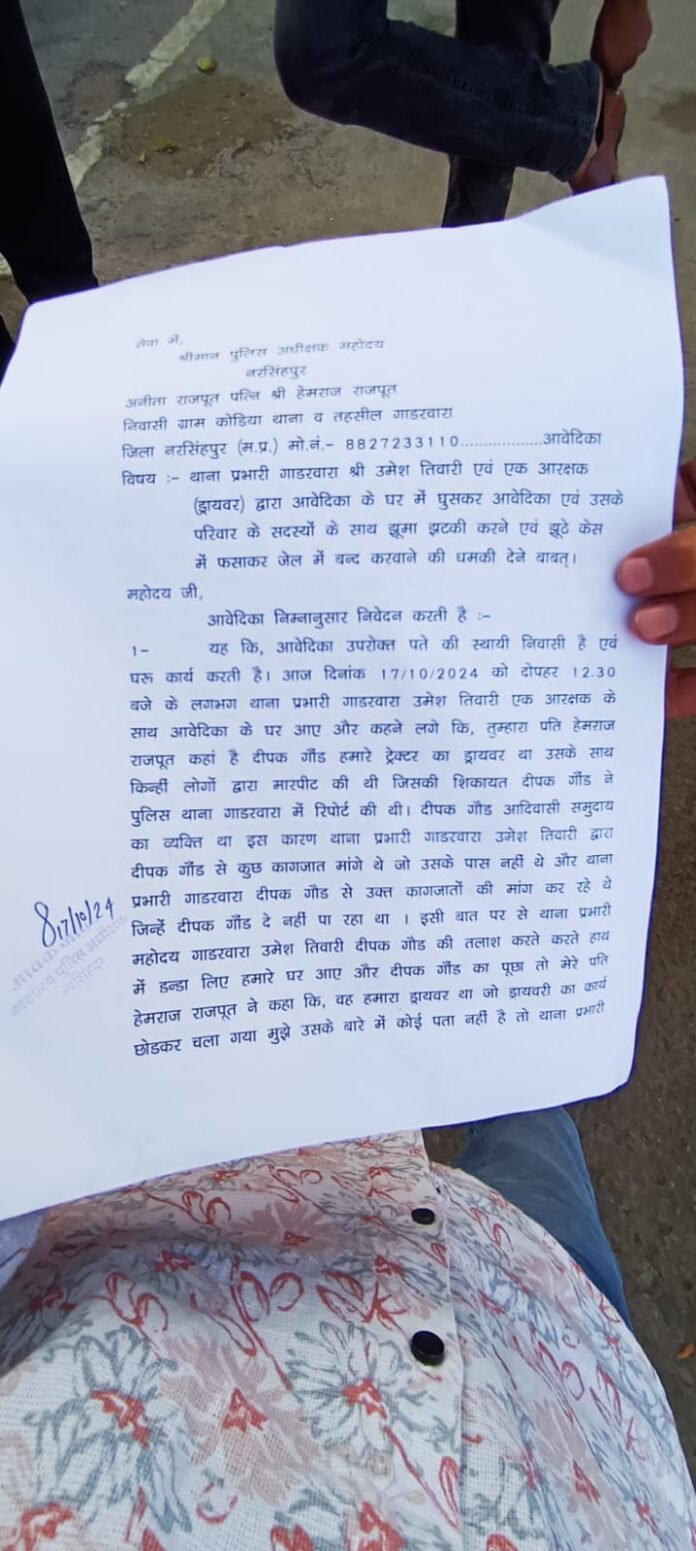 सेवा में,
श्रीमान पुलिस अधीक्षक महोदय
नरसिंहपुर
अनीता राजपूत पत्नि श्री हेमराज राजपूत
निवासी ग्राम कोडिया थाना व तहसील गाडरवारा
जिला नरसिंहपुर (म.प्र.) मो.नं.- 8827233110..................आवेदिका
विषय :– थाना प्रभारी गाडरवारा श्री उमेश तिवारी एवं एक आरक्षक
(ड्रायवर) द्वारा आवेदिका के घर में घुसकर आवेदिका एवं उसके
परिवार के सदस्यों के साथ झूमा झटकी करने एवं झूठे केस
में फसाकर जेल में बन्द करवाने की धमकी देने बाबत्।
महोदय जी,
आवेदिका निम्नानुसार निवेदन करती है :–
1– यह कि, आवेदिका उपरोक्त पते की स्थायी निवासी है एवं
घरू कार्य करती है। आज दिनांक 17/10/2024 को दोपहर 12.30
बजे के लगभग थाना प्रभारी गाडरवारा उमेश तिवारी एक आरक्षक के
साथ आवेदिका के घर आए और कहने लगे कि, तुम्हारा पति हेमराज
राजपूत कहां है दीपक गौंड हमारे ट्रेक्टर का ड्रायवर था उसके साथ
किन्हीं लोगों द्वारा मारपीट की थी जिसकी शिकायत दीपक गौंड ने
पुलिस थाना गाडरवारा में रिपोर्ट की थी। दीपक गौड आदिवासी समुदाय
का व्यक्ति था इस कारण थाना प्रभारी गाडरवारा उमेश तिवारी द्वारा
दीपक गौंड से कुछ कागजात मांगे थे जो उसके पास नहीं थे और थाना
प्रभारी गाडरवारा दीपक गौड से उक्त कागजातों की मांग कर रहे थे
जिन्हें दीपक गौंड दे नहीं पा रहा था । इसी बात पर से थाना प्रभारी
महोदय गाडरवारा उमेश तिवारी दीपक गौड की तलाश करते करते हाथ
में डन्डा लिए हमारे घर आए और दीपक गौंड का पूछा तो मेरे पति
हेमराज राजपूत ने कहा कि, वह हमारा ड्रायवर था जो ड्रायवरी का कार्य
छोडकर चला गया मुझे उसके बारे में कोई पता नहीं है तो थाना प्रभारी
17/10/24
कार्यालय पुलिस अधीक्षक
नरसिंहपुर